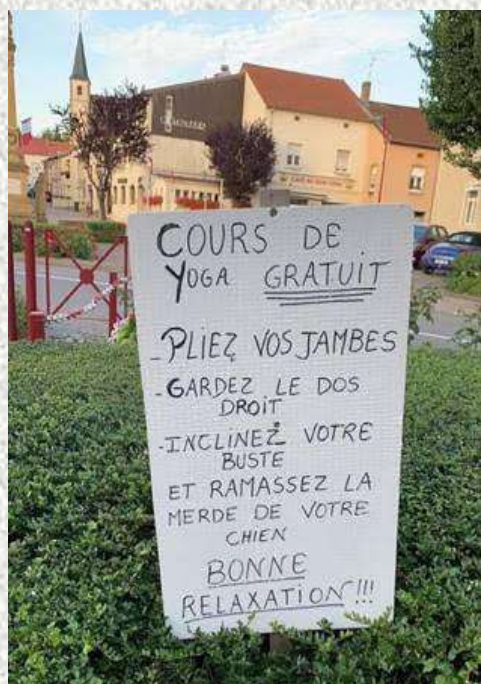 COURS DE
YOGA GRATUIT
- PLIEZ VOS JAMBES
- GARDEZ LE DOS
DROIT
- INCLINEZ VOTRE
BUSTE
ET RAMASSEZ LA
MERDE DE VOTRE
CHIEN
BONNE
RELAXATION !!!